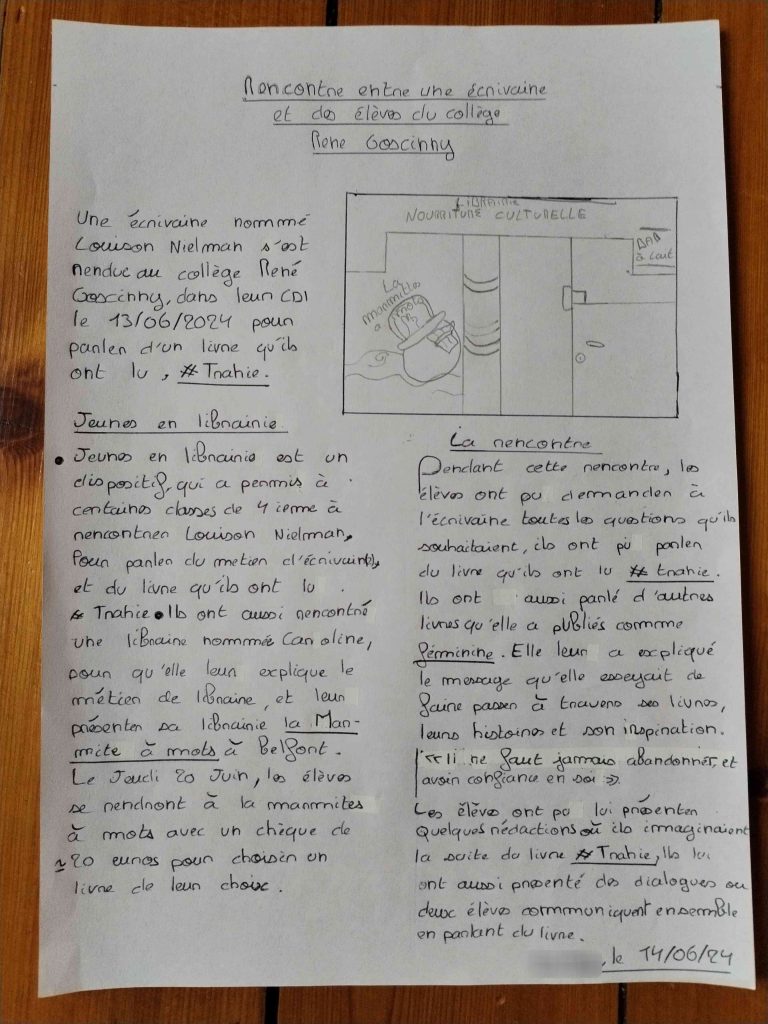 Rencontre entre une écrivaine
et des élèves du collège
Rene Goscinny
Une écrivaine nommé
Louison Nielman s'est
rendue au collège René
Goscinny, dans leur CDI
le 13/06/2024 pour
parler d'un livre qu'ils
ont lu, #Trahie.
LIBRAIRIE
NOURRITURE CULTURELLE
La
marmites
à
mots
Jeunes en librairie
• Jeunes en librairie est un
dispositif, qui a permis à
certaines classes de 4 ieme à
rencontrer Louison Nielman,
Pour parler du metier d'écrivain(e),
et du livre qu'ils ont lu
# Trahie. Ils ont aussi rencontré
une libraire nommée Caroline,
pour qu'elle leur explique le
métier de libraire, et leur
présenter sa librairie la Mar-
mite à mots à Belfort.
Le Jeudi 20 Juin, les élèves
se rendront à la marmites
à mots avec un chèque de
≈20 euros pour choisir un
livre de leur choix.
La rencontre
Pendant cette rencontre, les
élèves ont pu demander à
l'écrivaine toutes les questions qu'ils
souhaitaient, ils ont pu parler
du livre qu'ils ont lu #trahie.
Ils ont aussi parlé d'autres
livres qu'elle a publiés comme
féminine. Elle leur a expliqué
le message qu'elle esseyait de
faire passer à travers ses livres,
leurs histoires et son inspiration.
« Il ne faut jamais abandonner, et
avoir confiance en soi ».
Les élèves ont pu lui présenter
Quelques rédactions où ils immaginaient
la suite du livre #Trahie, Ils lui
ont aussi presenté des dialogues ou
deux élèves communiquent ensemble
en parlant du livre.
, le 14/06/24